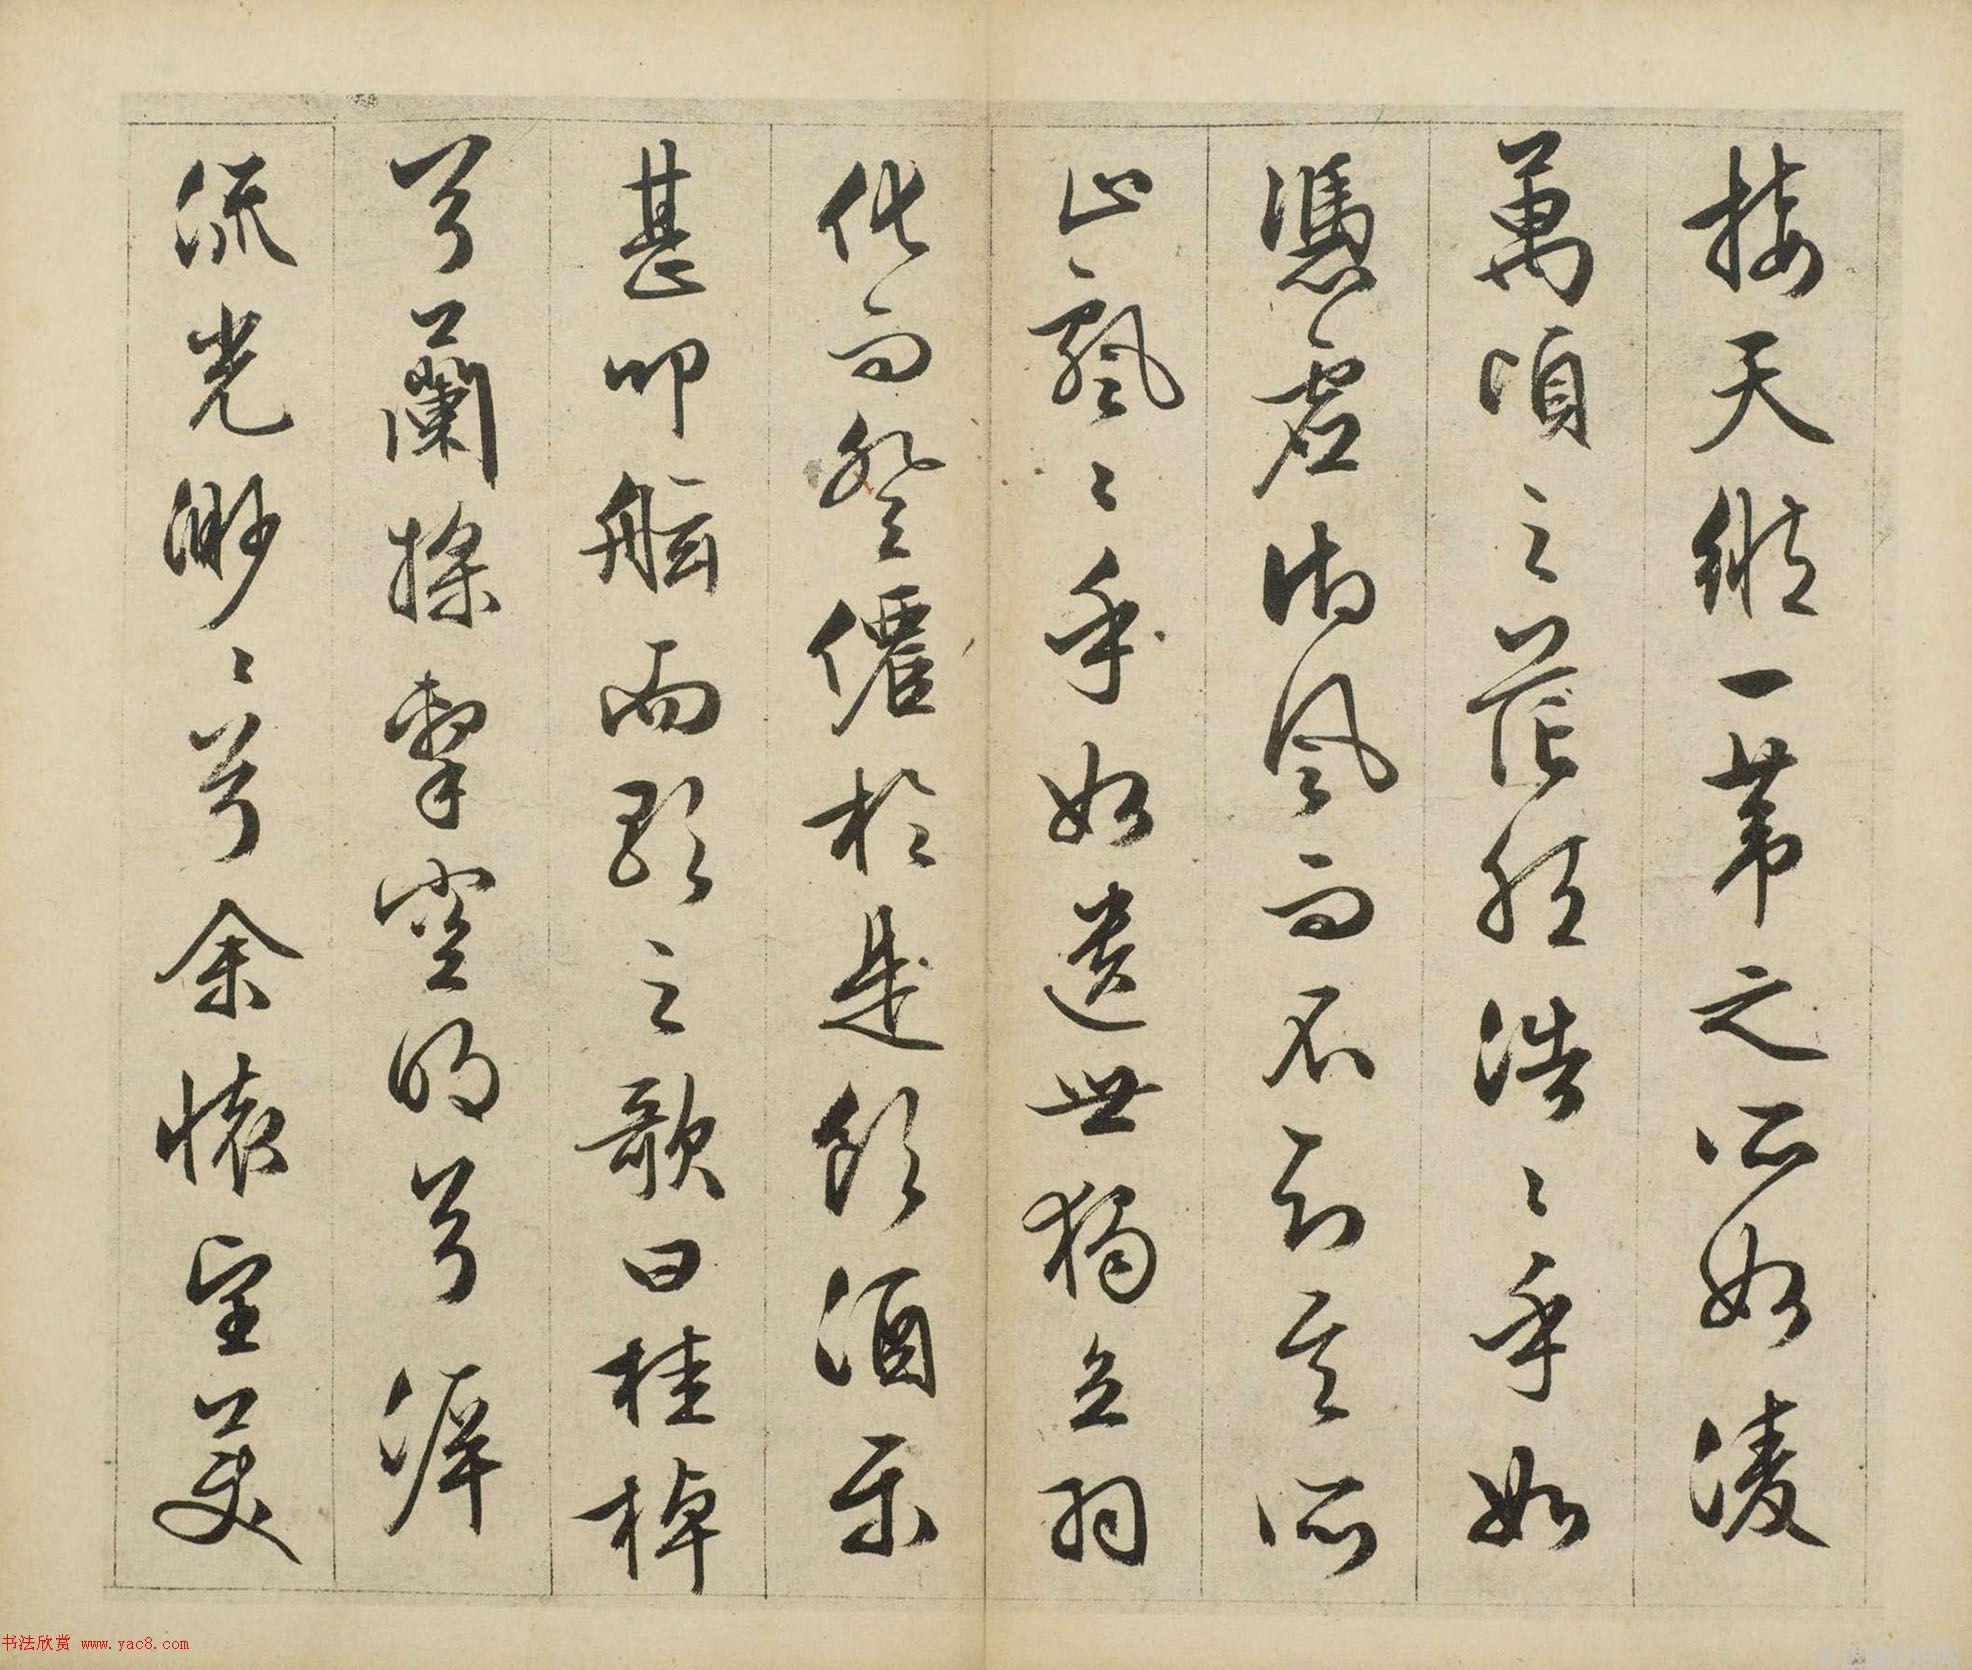 接天縱一葦之所如淩
萬頃之茫然浩〻乎如
馮虛御風而不知其所
止飄〻乎如遺世獨立羽
化而登僊於是飲酒樂
甚叩舷而歌之歌曰桂棹
兮蘭槳擊空明兮溯
流光渺〻兮余懷望美
书法欣赏 www.yac8.com